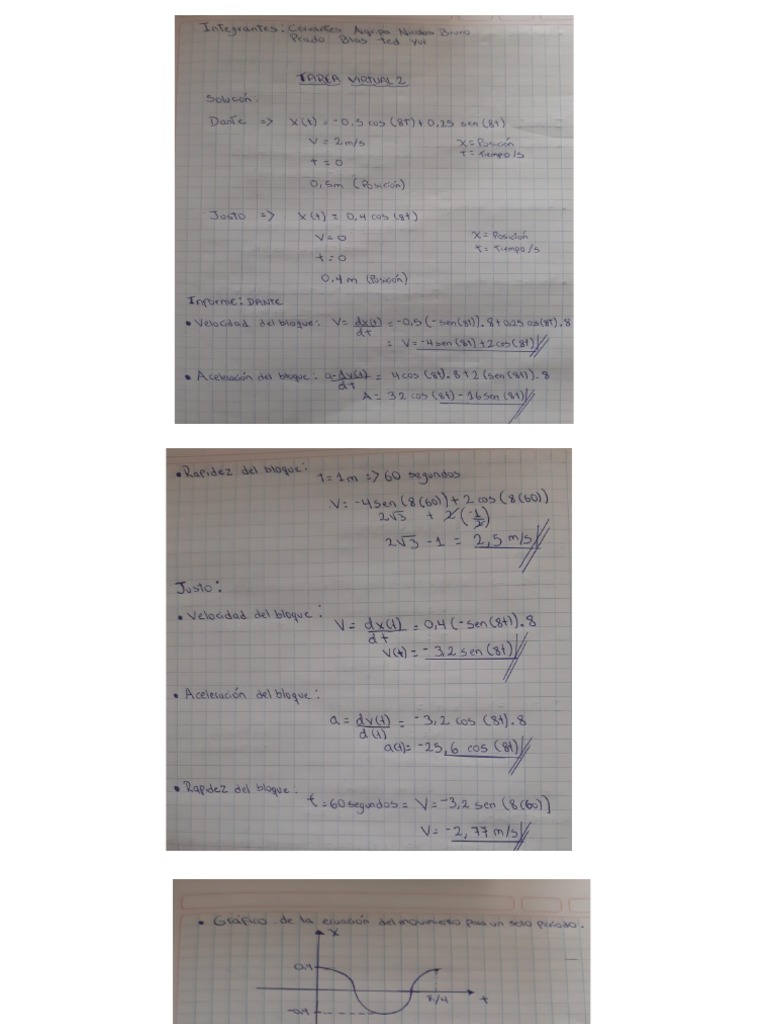 Integrantes: Cervantes Agripo Nicolas Bruno
Prado Blas Ted Yur
TAREA VIRTUAL 2
Solución:
Dante => X(t) = -0,5 cos (8t) + 0,25 sen (8t)
V = 2 m/s
X = Posición
t = 0
T = Tiempo/s
0,5m (Posición)
Justo => X(t) = 0,4 cos (8t)
V = 0
X = Posición
t = 0
T = Tiempo/s
0.4 m (Posición)
Informe: DANTE
• Velocidad del bloque: V = dx(t)/dt = -0,5 (-sen(8t)).8 + 0,25 cos(8t).8
= V = -4 sen (8t) + 2 cos (8t)
• Aceleración del bloque: a = dv(t)/dt = 4 cos (8t).8 + 2 (sen (8t)).8
A = 32 cos (8t) - 16 sen (8t)
• Rapidez del bloque: t = 1m => 60 segundos
V = -4 sen (8(60)) + 2 cos (8(60))
2√3 + 2 (-1/2)
2√3 - 1 = 2,5 m/s
Justo:
• Velocidad del bloque: V = dx(t)/dt = 0,4 (-sen (8t)).8
V(t) = -3,2 sen (8t)
• Aceleración del bloque:
a = dv(t)/d(t) = -3,2 cos (8t).8
a(t) = -25,6 cos (8t)
• Rapidez del bloque: t = 60 segundos = V = -3,2 sen (8(60))
V = -2,77 m/s
• Gráfico de la ecuación del movimiento para un solo periodo.
X
0.4
π/4
t
-0.4